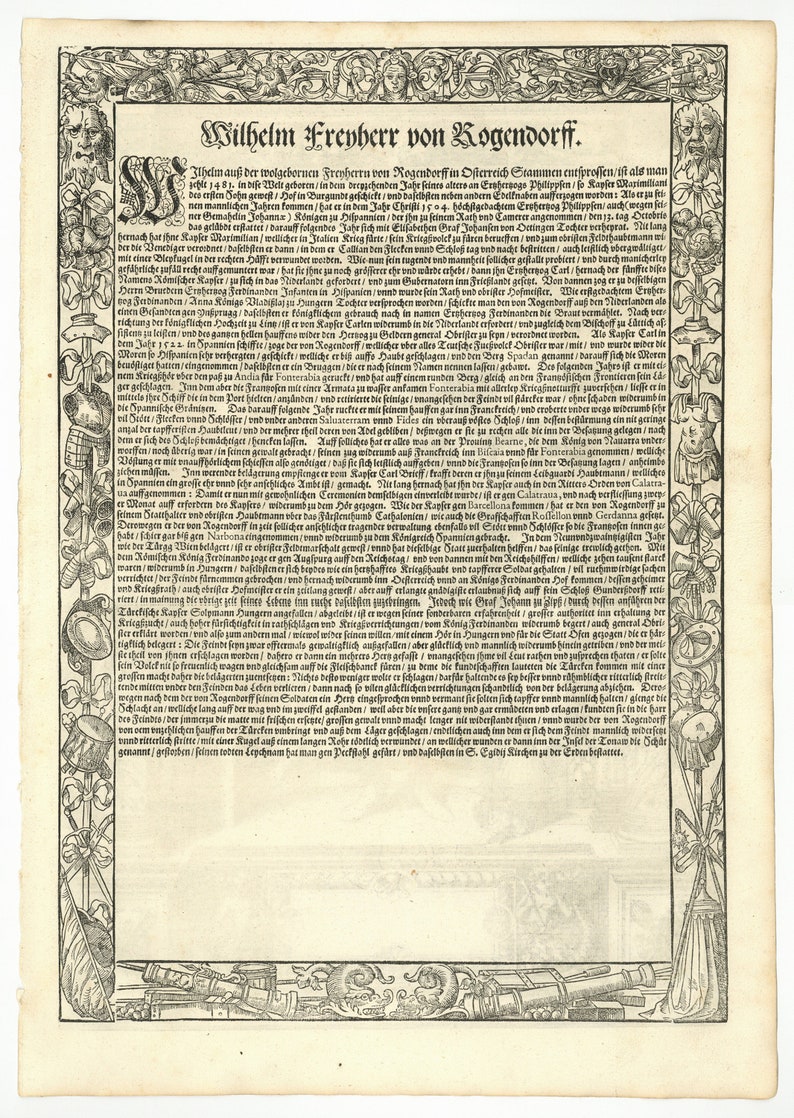 Wilhelm Freyherr von Rogendorff.
WIlhelm auß der wolgebornen Freyherrn von Rogendorff in Osterreich Stammen entsprossen / ist als man
zehlt 1483. in dise Welt geboren / in dem dreyzehenden Jahr seines alters an Ertzhertzogs Philippsen / so Kayser Maximiliani
des ersten Sohn gewest / Hof in Burgundt geschickt / vnd daselbsten neben andern Edelknaben aufferzogen worden: Als er zu sei-
nen mannlichen Jahren kommen / hat er in dem Jahr Christi 1504. höchstgedachtem Ertzhertzog Philippsen / auch (wegen sei-
ner Gemahelin Johannæ) Königen zu Hispannien / der jhn zu seinem Rath vnd Camerer angenommen / den 13. tag Octobris
das gelübdt erstattet / darauff folgendes Jahr sich mit Elisabethen Graf Johansen von Oetingen Tochter verheyrat. Nit lang
hernach hat jhne Kayser Maximilian / wellicher in Italien Krieg fürte / sein Kriegßvolck zu füren beruffen / vnd zum obristen Feldthaubtmann wi-
der die Venediger verordnet / daselbsten er dann / in dem er Callian den Flecken vnnd Schloß tag vnd nacht bestritten / auch letstlich vbergwältiget /
mit einer Bleykugel in der rechten Hüfft verwundet worden. Wie nun sein tugend vnd mannheit sollicher gestallt probiert / vnd durch manicherley
gefährliche zufäll recht auffgemuntert war / hat sie jhne zu noch grösserer ehr vnd würde erhebt / dann jhn Ertzhertzog Carl / hernach der fünffte dises
Namens Römischer Kayser / zu sich in das Niderlandt gefordert / vnd zum Gubernatorn inn Frießlandt gesetzt. Von dannen zog er zu desselbigen
Herrn Brudern Ertzhertzog Ferdinanden Infanten in Hispanien / vnnd wurde sein Rath vnd obrister Hofmeister. Wie erstgedachtem Ertzher-
tzog Ferdinanden / Anna Königs Vladißlai zu Hungern Tochter versprochen worden / schickte man den von Rogendorff auß den Niderlanden als
einen Gesandten gen Ynßprugg / daselbsten er königklichem gebrauch nach in namen Ertzhertzog Ferdinands die Braut vermählet. Nach ver-
richtung der königklichen Hochzeit zu Lintz / ist er von Kayser Carlen widerumb in die Niderlandt erfordert / vnd zugleich dem Bischoff zu Lüttich as-
sistentz zu leisten / vnd des gantzen hellen hauffens wider den Hertzog zu Geldern general Obrister zu seyn / verordnet worden. Als Kayser Carl in
dem Jahr 1522. in Spannien schiffte / zoge der von Rogendorff / wellicher vber alles Teutsche Fußvolck Obrister war / mit / vnd wurde wider die
Moren so Hispanien sehr verhergten / geschickt / welliche er biß auffs Haubt geschlagen / vnd den Berg Spadan genannt / darauff sich die Moren
bevöstiget hatten / eingenommen / daselbsten er ein Bruggen / die er nach seinem Namen nennen lassen / gebawt. Des folgenden Jahrs ist er mit ei-
nem Kriegßhör vber den paß zu Andia für Fonterabia geruckt / vnd hat auff einem runden Berg / gleich an den Frantzösischen Frontieren sein Lä-
ger geschlagen. Inn dem aber die Frantzosen mit einer Armata zu wasser ankamen Fonterabia mit allerley Kriegßnotturfft zuversehen / ließe er in
mittels jhre Schiff die in dem Port hielten / anzünden / vnd retirierte die seinige / vnangesehen der Feindt vil stärcker war / ohne schaden widerumb in
die Spannische Gräntzen. Das darauff folgende Jahr ruckte er mit seinem hauffen gar inn Franckreich / vnd eroberte vnder wegs widerumb sehr
vil Stött / Flecken vnnd Schlösser / vnd vnder andern Saluaterram vnnd Fides ein vberauß vöstes Schloß / inn dessen bestürmung ein nit geringe
anzal der tapfferisten Haubtleut / vnd der mehrer theil deren von Adel gebliben / deßwegen er sie zu rechen alle die inn der Besatzung gelegen / nach
dem er sich des Schloß bemächtiget / hencken lassen. Auff solliches hat er alles was an der Prouintz Bearne, die dem König von Nauarra vnder-
worffen / noch übrig war / in seinen gewalt gebracht / seinen zug widerumb auß Franckreich inn Biscaia vnnd für Fonterabia genommen / welliche
Vöstung er mit vnauffhörlichem schiessen also genötiget / daß sie sich letstlich auffgeben / vnnd die Frantzosen so inn der Besatzung lagen / anheimbs
ziehen müssen. Inn werender belägerung empfienge er vom Kayser Carl Brieff / krafft deren er jhn zu seinem Leibguardi Haubtmann / welliches
in Spannien ein grosse ehr vnnd sehr ansehliches Ambt ist / gemacht. Nit lang hernach hat jhn der Kayser auch in den Ritters Orden von Calatra-
ua auffgenommen: Damit er nun mit gewohnlichen Ceremonien demselbigen einverleibt wurde / ist er gen Calatraua, vnd nach verfliessung zwey-
er Monat auff erfordern des Kaysers / widerumb zu dem Hör gezogen. Wie der Kayser gen Barcellona kommen / hat er den von Rogendorff zu
seinem Statthalter vnd obristen Haubtmann vber das Fürstenthumb Cathalonien / wie auch die Grafschafften Rossellon vnnd Cerdanna gesetzt.
Derowegen er der von Rogendorff in zeit sollicher ansehlicher tragender verwaltung ebenfals vil Stött vnnd Schlösser so die Frantzosen innen ge-
habt / schier gar biß gen Narbona eingenommen / vnnd widerumb zu dem Königreich Spannien gebracht. In dem Neunvndzwaintzigisten Jahr
wie der Türgg Wien belägert / ist er obrister Feldtmarschalck gewest / vnnd hat dieselbige Statt zuerhalten helffen / das seinige trewlich gethon. Mit
dem Römischen König Ferdinando zoge er gen Augspurg auff den Reichstag / vnd von dannen mit den Reichshilffen / welliche zehen tausent starck
waren / widerumb in Hungern / daselbsten er sich beydes wie ein hertzhafftes Kriegßhaubt vnd tapfferer Soldat gehalten / vil ruhmwirdige sachen
verrichtet / der Feindt fürnemmen gebrochen / vnd hernach widerumb inn Oesterreich vnnd an Königs Ferdinanden Hof kommen / dessen geheimer
vnd Kriegßrath / auch obrister Hofmeister er ein zeitlang gewest / aber auff erlangte gnädigiste erlaubnuß sich auff sein Schloß Gunderßdorff reti-
riert / in mainung die vbrige zeit seines Lebens inn ruhe daselbsten zuzebringen. Jedoch wie Graf Johann zu Zipß / durch dessen anführen der
Türckische Kayser Solymann Hungern angefallen / abgeleibt / ist er wegen seiner sonderbaren erfahrenheit / ist er grosser authoritet inn erhaltung der
Kriegßzucht / auch hoher fürsichtigkeit in rathschlägen vnd Kriegßverrichtungen / vom König Ferdinanden widerumb begert / auch general Obri-
ster erklärt worden / vnd also zum andern mal / wiewol wider seinen willen / mit einem Hör in Hungern vnd für die Statt Ofen gezogen / die er här-
tigklich belegert: Die Feindt seyn zwar offtermals gewaltigklich außgefallen / aber glücklich vnd mannlich widerumb hinein getriben / vnd der mei-
ste theil von jhnen erschlagen worden / dahero er dann ein mehrers Hertz gefasst / vnangesehen jhme vil Leut rathen vnd zusprechen thaten / er solte
sein Volck nit so freuenlich wagen vnd gleichsam auff die Fleischbanck füren / zu deme die kundtschafften lauteten die Türcken kommen mit einer
grossen macht daher die belägerten zuentsetzen: Nichts desto weniger wolte er schlagen / darfür haltende es sey besser vnnd rühmblicher ritterlich streit-
tende mitten vnder den Feinden das Leben verlieren / dann nach so vilen glücklichen verrichtungen schandtlich von der belägerung abziehen. Dero-
wegen nach dem der von Rogendorff seinen Soldaten ein Hertz eingesprochen vnnd vermant sie solten sich tapffer vnnd mannlich halten / gienge die
Schlacht an / welliche lang auff der wag vnd im zweiffel gestanden / weil aber die vnsere gantz vnd gar ermüdeten vnd erlagen / kundten sie in die harr
des Feindts / der jmmerzu die matte mit frischen ersetzte / grossen gewalt vnnd macht lenger nit widerstandt thuen / vnnd wurde der von Rogendorff
von dem vnzehlichen hauffen der Türcken vmbringt vnd auß dem Läger geschlagen / endtlichen auch inn dem er sich dem Feindt mannlich widersetzt
vnnd ritterlich stritte / mit einer Kugel auß einem langen Rohr tödtlich verwundet / an wellicher wunden er dann inn der Insel der Tonaw die Schüt
genannt / gestorben / seinen todten Leychnam hat man gen Peckstahl gefürt / vnd daselbsten in S. Egidij Kirchen zu der Erden bestattet.